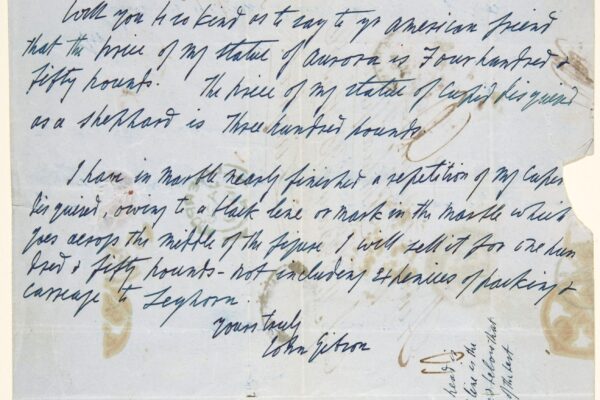 Will you be so kind as to say to yr american friend
that the price of my statue of Aurora is Four hundred &
fifty pounds. The price of my statue of Cupid disguised
as a shephard is Three hundred pounds.
I have in marble nearly finished a repetition of my Cupid
disguised, owing to a black line or mark in the marble which
goes across the middle of the figure I will sell it for one hun
dred & fifty pounds - not including expences of packing &
carriage to Leghorn.
yours truly
John Gibson
head
line is the
below that
of the best